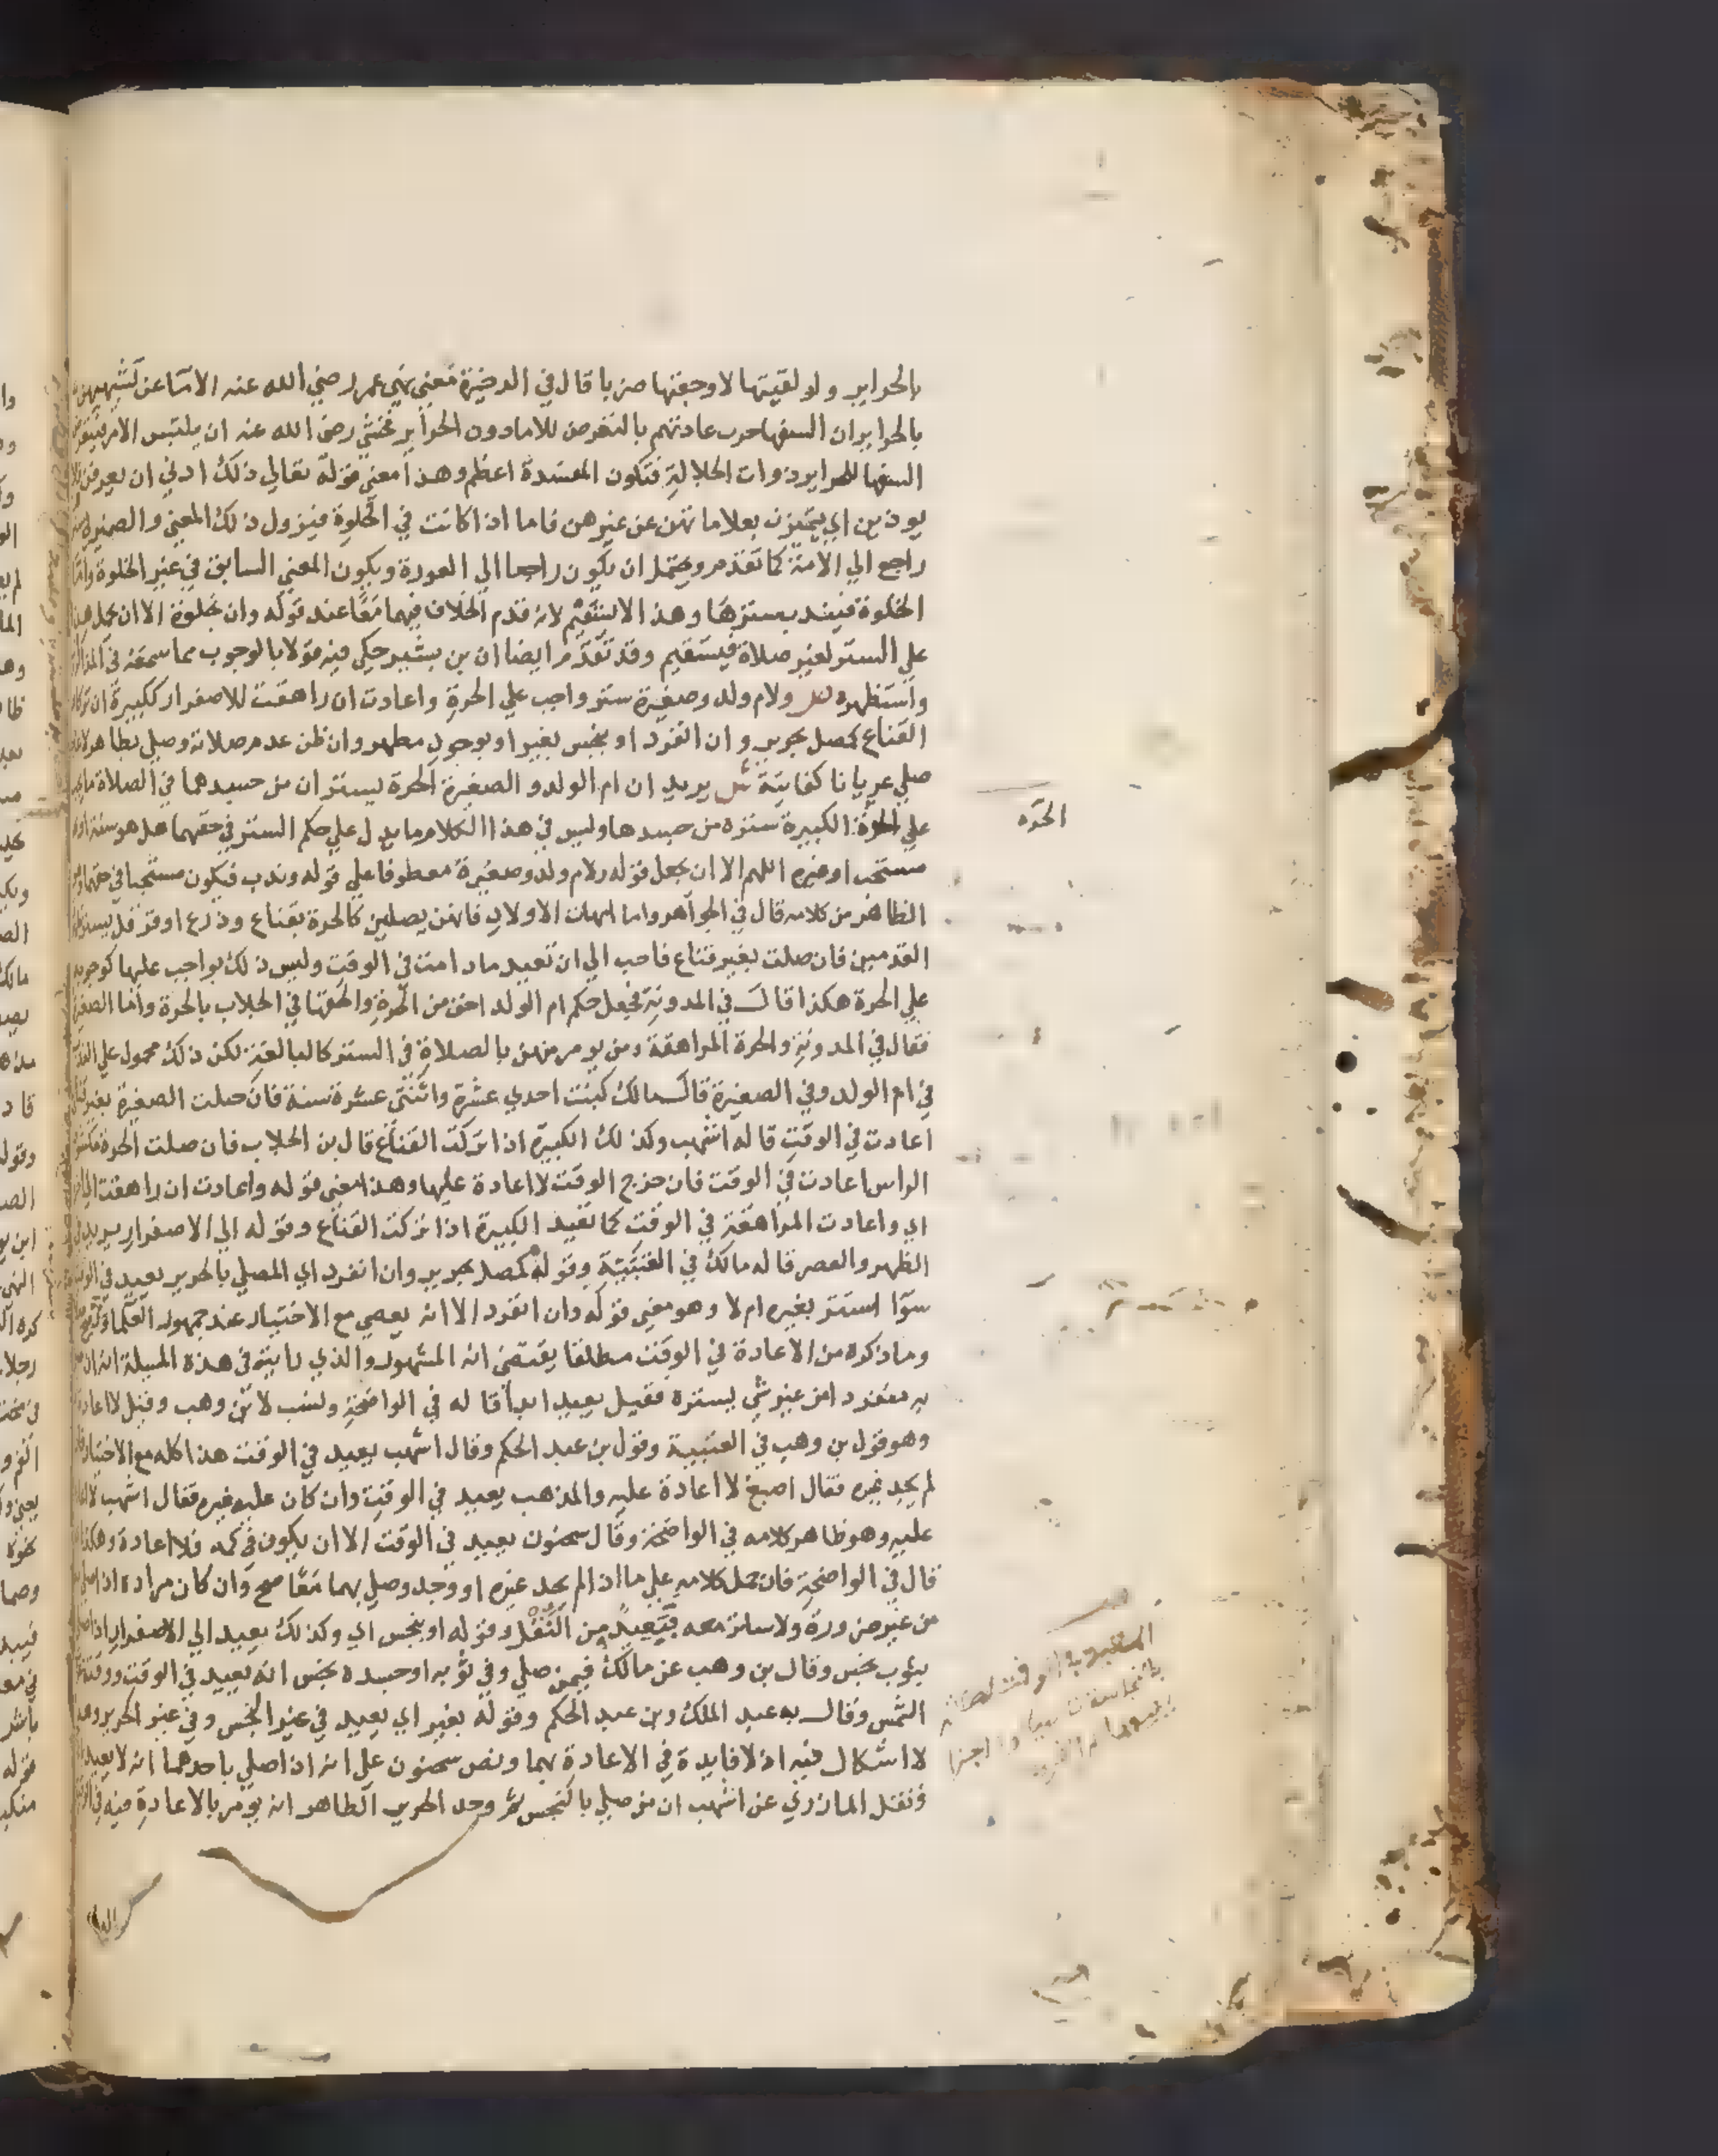 بالحراير ولو لقيتها لاوجعتها ضربا قال في الدخيرة فمعني نهي عمر رضي الله عنه الاما عن تشبيههن
بالحراير ان السفها جرت عادتهم بالتعرض للاما دون الحراير فخشي رضي الله عنه ان يلتبس الامر
السفها للحراير ذوات الجلالة فتكون المفسدة اعظم وهذا معني قوله تعالي ذلك ادني ان يعرفن فلا
يوذين اي يتميزن بعلاماتهن عن غيرهن فاما اذا كانت في الخلوة فيزول ذلك المعني والضمير
راجع الي الامة كما تقدم ويحتمل ان يكون راجعا الي العورة ويكون المعني السابق في غير الخلوة واما
الخلوة فيندب سترها وهذا لا يستقيم لانه قدم الخلاف فيهما معا عند قوله وان بخلوة الا ان يحمل هذا
علي الستر لغير صلاة فيستقيم وقد تقدم ايضا ان بن بشير حكي فيه قولا بالوجوب مما سمعه في
واستظهره ص ولام ولد وصغيرة ستر واجب علي الحرة واعادت ان راهقت للاصفرار ككبيرة ان تركا
القناع كمصل بحرير وان انفرد او بنجس بغير او بوجود مطهر وان ظن عدم صلاته وصلي بطاهر لا
صلي عريانا كفايتة ش يريد ان ام الولد والصغيرة الحرة يستتران من جسدهما في الصلاة ما يجب
علي الحرة الكبيرة ستره من جسدها وليس في هذا الكلام ما يدل علي حكم الستر في حقهما هل هو سنة او
مستحب او غيره اللهم الا ان يجعل قوله ولام ولد وصغيرة معطوفا علي قوله وندب فيكون مستحبا في حقهما
الظاهر من كلامه قال في الجواهر واما امهات الاولاد فانهن يصلين كالحرة بقناع ودرع او قرقل يستر
القدمين فان صلت بغير قناع فاحب الي ان تعيد ما دامت في الوقت وليس ذلك بواجب عليها كوجوبه
علي الحرة هكذا قال في المدونة فجعل حكم ام الولد اخف من الحرة والحقها في الجلاب بالحرة واما الصغيرة
فقال في المدونة والحرة المراهقة ومن يومر منهن بالصلاة في الستر كالبالغة لكن ذلك محمول علي الندب
في ام الولد وفي الصغيرة قال مالك كبنت احدي عشرة واثنتي عشرة سنة فان صلت الصغيرة بغير قناع
اعادت في الوقت قاله اشهب وكذلك الكبيرة اذا تركت القناع قال بن الجلاب فان صلت الحرة مكشوفة
الراس اعادت في الوقت فان خرج الوقت لا اعادة عليها وهذا معني قوله واعادت ان راهقت
اي واعادت المراهقة في الوقت كما تعيد الكبيرة اذا تركت القناع وقوله الي الاصفرار يريد في
الظهر والعصر قاله مالك في العتبية وقوله كمصل بحرير وان انفرد اي المصلي بالحرير يعيد في الوقت
سوا استتر بغيره ام لا وهو معني قوله وان انفرد الا انه يعصي مع الاختيار عند جمهور العلما
وما ذكره من الاعادة في الوقت مطلقا يقتضي انه المشهور والذي رايته في هذه المسيلة انه ان
به منفردا من غير شي يستره فقيل يعيد ابدا قاله في الواضحة ونسب لابن وهب وقيل لا اعادة
وهو قول بن وهب في العتبية وقول بن عبد الحكم وقال اشهب يعيد في الوقت هذا كله مع الاختيار
لم يجد غيره فقال اصبغ لا اعادة عليه والمذهب يعيد في الوقت وان كان عليه غيره فقال اشهب لا
عليه وهو ظاهر كلامه في الواضحة وقال سحنون يعيد في الوقت الا ان يكون في كمه فلا اعادة وهكذا
قال في الواضحة فان حمل كلامه علي ما اذا لم يجد غيره او وجد وصلي بهما معا صح وان كان مراده اذا صلي
من غير ضرورة ولا ساتر معه فتعيد من النقل وقوله او بنجس اي وكذلك يعيد الي الاصفرار اذا صلي
بثوب نجس وقال بن وهب عن مالك فيمن صلي وفي ثوبه او جسده نجس انه يعيد في الوقت ووقته
الشمس وقال به عبد الملك وبن عبد الحكم وقوله بغير اي يعيد في غير النجس وفي غير الحرير وهذا
لا اشكال فيه اذ لا فايدة في الاعادة بهما ونص سحنون علي انه اذا صلي باحدهما انه لا يعيد
ونقل المازري عن اشهب ان من صلي بالنجس ثم وجد الحرير الطاهر انه يومر بالاعادة فيه في
الحرة